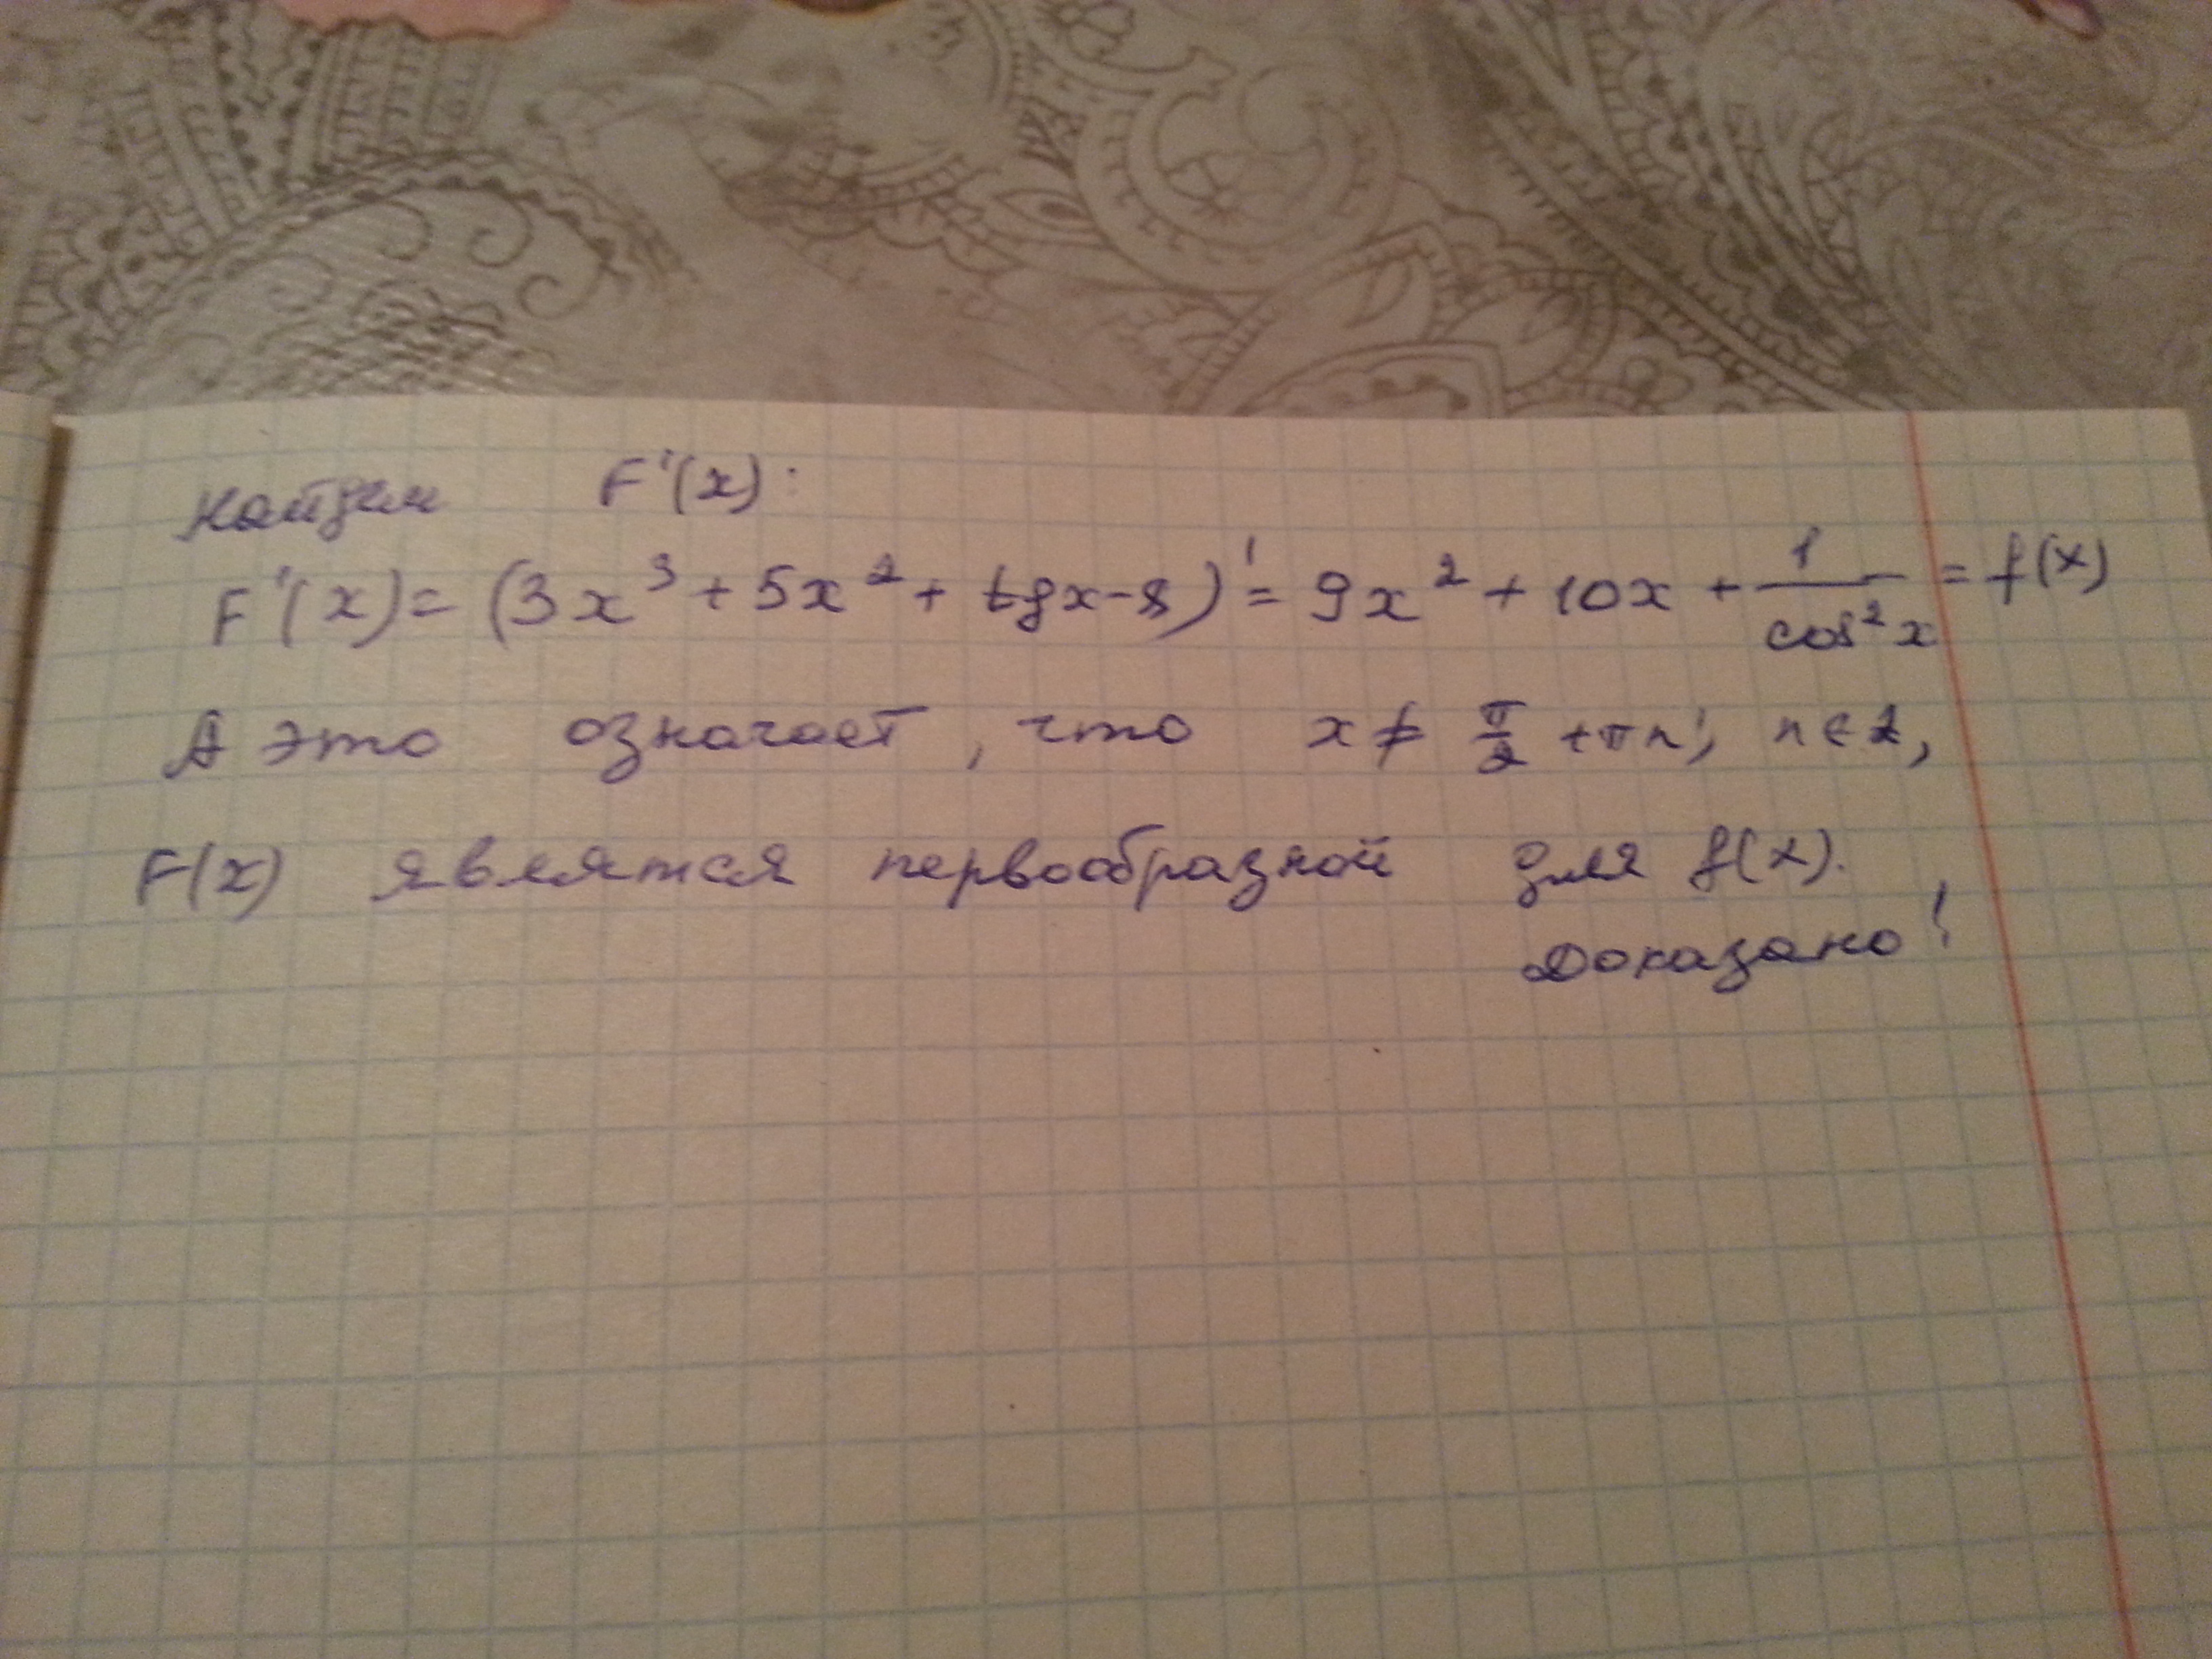 Найдем F'(x):
F'(x) = (3x³ + 5x² + tgx - 8)' = 9x² + 10x + 1/cos²x = f(x)
А это означает, что x ≠ π/2 + πn; n ∈ Z,
F(x) является первообразной для f(x).
Доказано!